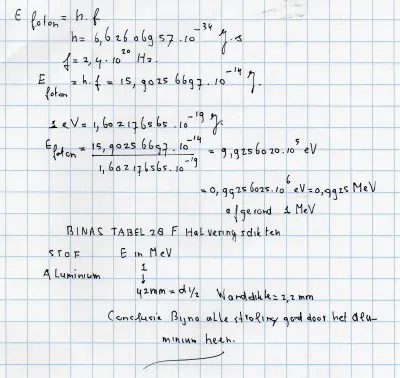 E foton = h.f
h = 6,62606957.10^-34 J.s
f = 2,4.10^20 Hz.
E foton = h.f = 15,90256697.10^-14 J.
1 eV = 1,602176565.10^-19 J.
E foton = 15,90256697.10^-14 / 1,602176565.10^-19 = 9,9256020.10^5 eV
= 0,99256025.10^6 eV = 0,9925 MeV
afgerond 1 MeV
BINAS TABEL 28 F Halveringsdikten
STOF E in MeV
Aluminium 1
↓
42mm = d 1/2 Wanddikte = 2,2 mm
Conclusie Bijna alle straling gaat door het alu-
minium heen.